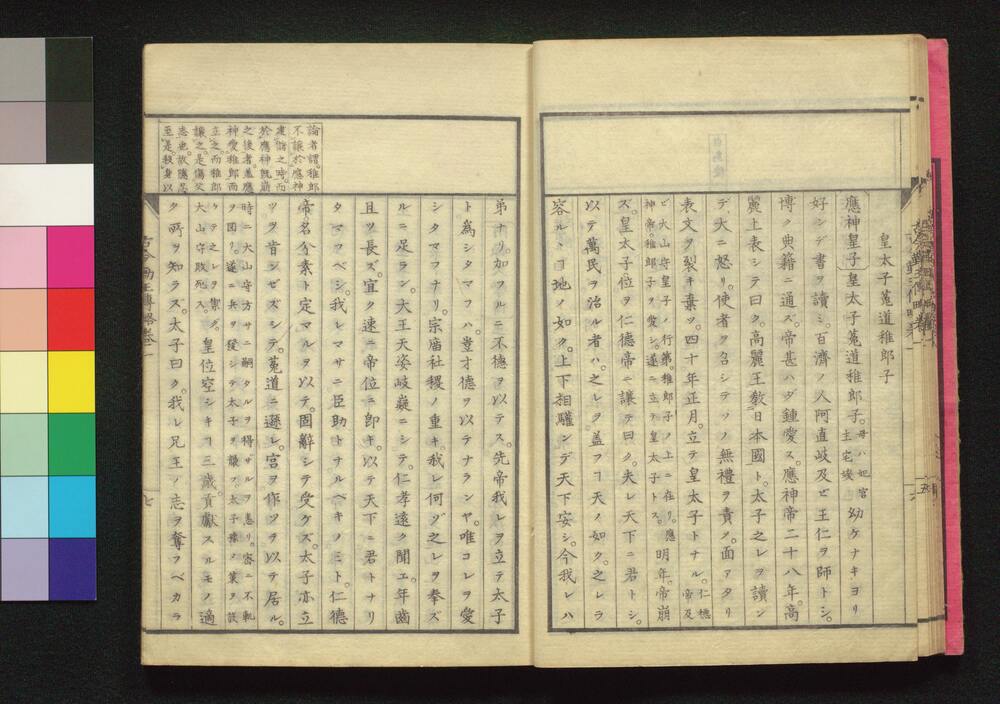 皇太子菟道稚郎子
應神皇子皇太子菟道稚郎子。母ハ妃宮主宅媛幼ケナキヨリ
好ンデ書ヲ讀ミ。百濟ノ人阿直岐及ビ王仁ヲ師トシ。
博ク典籍ニ通ズ。帝甚ハダ鍾愛ス。應神帝二十八年。高
麗上表シテ曰ク。高麗王敎日本國ト。太子之レヲ讀ン
デ大ニ怒リ。使者ヲ召シテソノ無禮ヲ責ヅ。面アタリ
表文ヲ裂キ棄ツ。四十年正月。立テ皇太子トナル。仁德帝及
ビ大山守皇子ノ行第。稚郎子ノ上ニ在リ。應神帝。稚郎子ヲ愛シ。遂ニ立テ皇太子トス。明年。帝崩
ズ。皇太子位ヲ仁德帝ニ讓テ曰ク。夫レ天下ニ君トシ。
以テ萬民ヲ治ル者ハ。之レヲ蓋フヿ天ノ如ク。之レヲ
容ルヽヿ地ノ如ク。上下相驩ンデ天下安シ。今我レハ
弟ナリ。加フルニ不德ヲ以テス。先帝我レヲ立テ太子
ト爲シタマフハ。豈才德ヲ以テナランヤ。唯コレヲ愛
シタマフナリ。宗廟社稷ノ重キ。我レ何ゾ之レヲ奉ズ
ルニ足ラン。大王天姿岐嶷ニシテ。仁孝遠ク聞エ。年齒
且ツ長ズ。宜ク速ニ帝位ニ卽キ。以テ天下ニ君トナリ
タマフベシ。我レマサニ臣助トナルベキノミト。仁德
帝名分素ト定マルヲ以テ。固辭シテ受ケズ。太子亦立
ツヲ肯ンゼズシテ。菟道ニ遜レ。宮ヲ作ツテ以テ居ル。
時ニ大山守方サニ嗣タルヲ得ザルヲ恚リ。密ニ不軌ヲ圖リ。遂ニ兵ヲ發シテ太子ヲ
ケテ之レヲ禦グ。大山守敗死ス。皇位空シキヿ三歲。貢獻スルモノ適
ク所ヲ知ラズ。太子曰ク。我レ兄王ノ志ヲ奪フベカラ
論者謂。稚郎
不讓於應神
建儲之時。而
於應神旣崩
之後者。蓋應
神愛稚郎而
立之。而稚郎
讓之。是傷父
志也。故隱忍
至是。殺身以
古今勤王傳略卷一
七